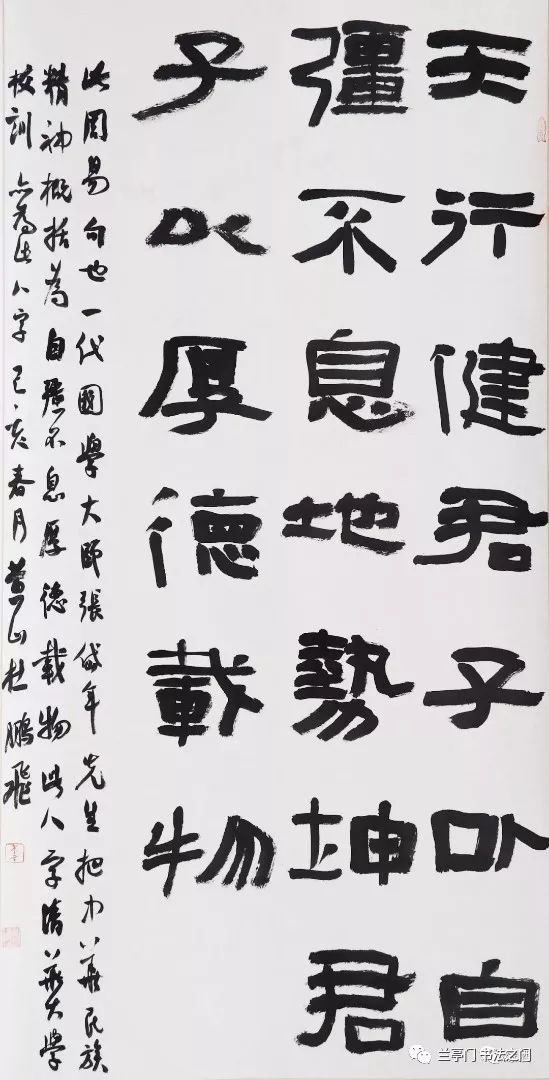 天行健君子以自
彊不息地勢坤君
子以厚德載物
此周易句也一代國學大師張岱年先生把中華民族
精神概括為自彊不息厚德載物此八字清華大學
校訓亦為此八字己亥春月黃山杜鵬飛
兰亭门 书法之门